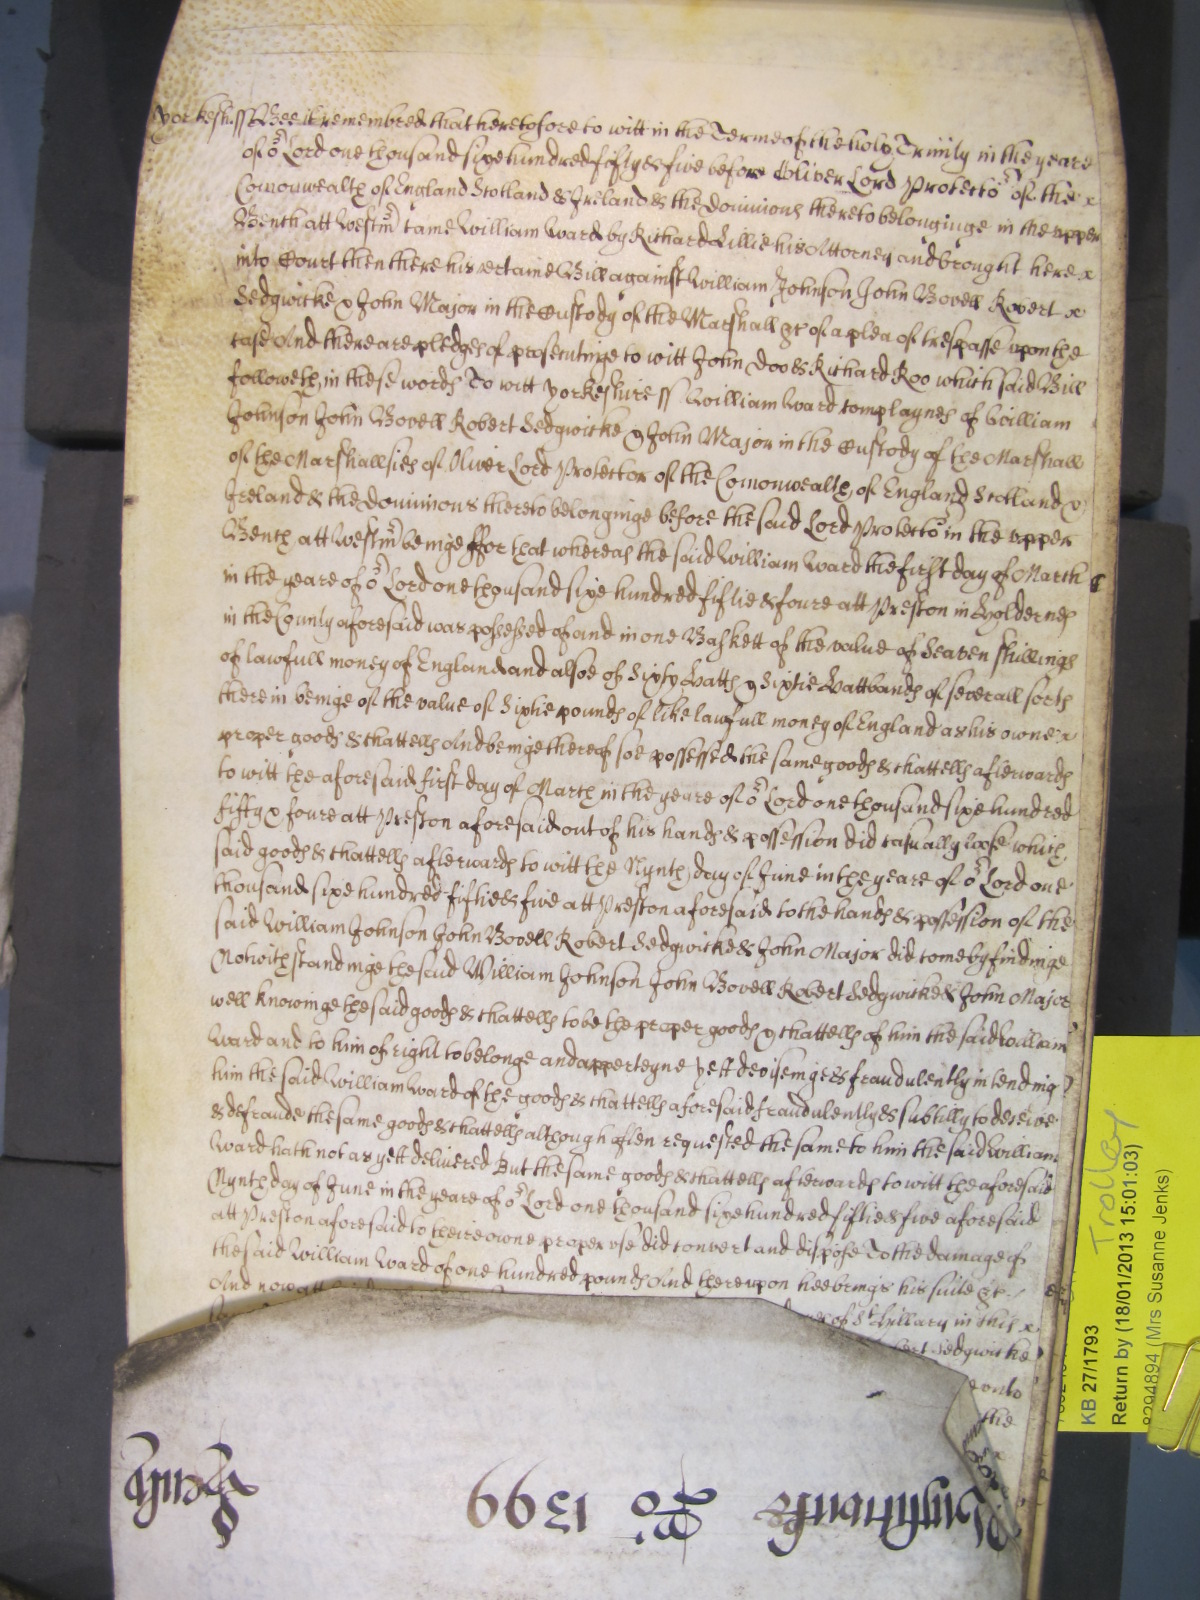 Yorkesh: ss Bee it remembred that heretofore to witt in the Terme of the holy Trinity in the yeare
of or Lord one thousand sixe hundred fifty & five before Oliver Lord Protector of the x
Comonwealth of England Scotland & Ireland & the dominions thereto belonginge in the upper
Bench att Westmr came William Ward by Richard Lillie his Attorney and brought here x
into Court then there his certaine Bill against William Johnson John Bovell Robert x
Sedgwicke & John Major in the Custody of the Marshall &c of a plea of trespasse upon the
case And there are pledges of prosecutinge to witt John Doo & Richard Roo which said Bill
followeth in these words To witt Yorkeshire ss William Ward complaynes of William
Johnson John Bovell Robert Sedgwicke & John Major in the Custody of the Marshall
of the Marshallsies of Oliver Lord Protector of the Comonwealth of England Scotland &
Ireland & the dominions thereto belonginge before the said Lord Protector in the upper
Bench att Westmr beinge ffor that whereas the said William Ward the first day of March
in the yeare of or Lord one thousand sixe hundred fiftie & foure att Preston in Holdernes
in the County aforesaid was possessed of and in one Baskett of the value of Seaven shillings
of lawfull money of England and alsoe of Sixty Hatts & Sixtie Hattbands of severall sorts
therein beinge of the value of Sixtie pounds of like lawfull money of England as his owne x
proper goods & chattells And beinge thereof soe possessed the same goods & chattells afterwards
to witt the aforesaid first day of March in the yeare of or Lord one thousand sixe hundred
fifty & foure att Preston aforesaid out of his hands & possession did casually loose which
said goods & chattells afterwards to witt the Nynth day of June in the yeare of or Lord one
thousand sixe hundred fiftie & five att Preston aforesaid to the hands & possession of the
said William Johnson John Bovell Robert Sedgwicke & John Major did come by findinge
Notwithstandinge the said William Johnson John Bovell Robert Sedgwicke & John Major
well knowinge the said goods & chattells to be the proper goods & chattells of him the said William
Ward and to him of right to belonge and apperteyne yett deviseinge & fraudulently intending
him the said William Ward of the goods & chattells aforesaid fraudulently & subtilly to deceive
& defraude the same goods & chattells although often requested the same to him the said William
Ward hath not as yett delivered But the same goods & chattells afterwards to witt the aforesaid
Nynth day of June in the yeare of or Lord one thousand sixe hundred fiftie & five aforesaid
att Preston aforesaid to theire owne proper use did convert and dispose To the damage of
the said William Ward of one hundred pounds And thereupon hee brings his suite &c
And now att
of St Hillary in this x
Sedgwicke
the
Ao 1399
Trolley
KB 27/1793
Return by (18/01/2013 15:01:03)
8294894 (Mrs Susanne Jenks)